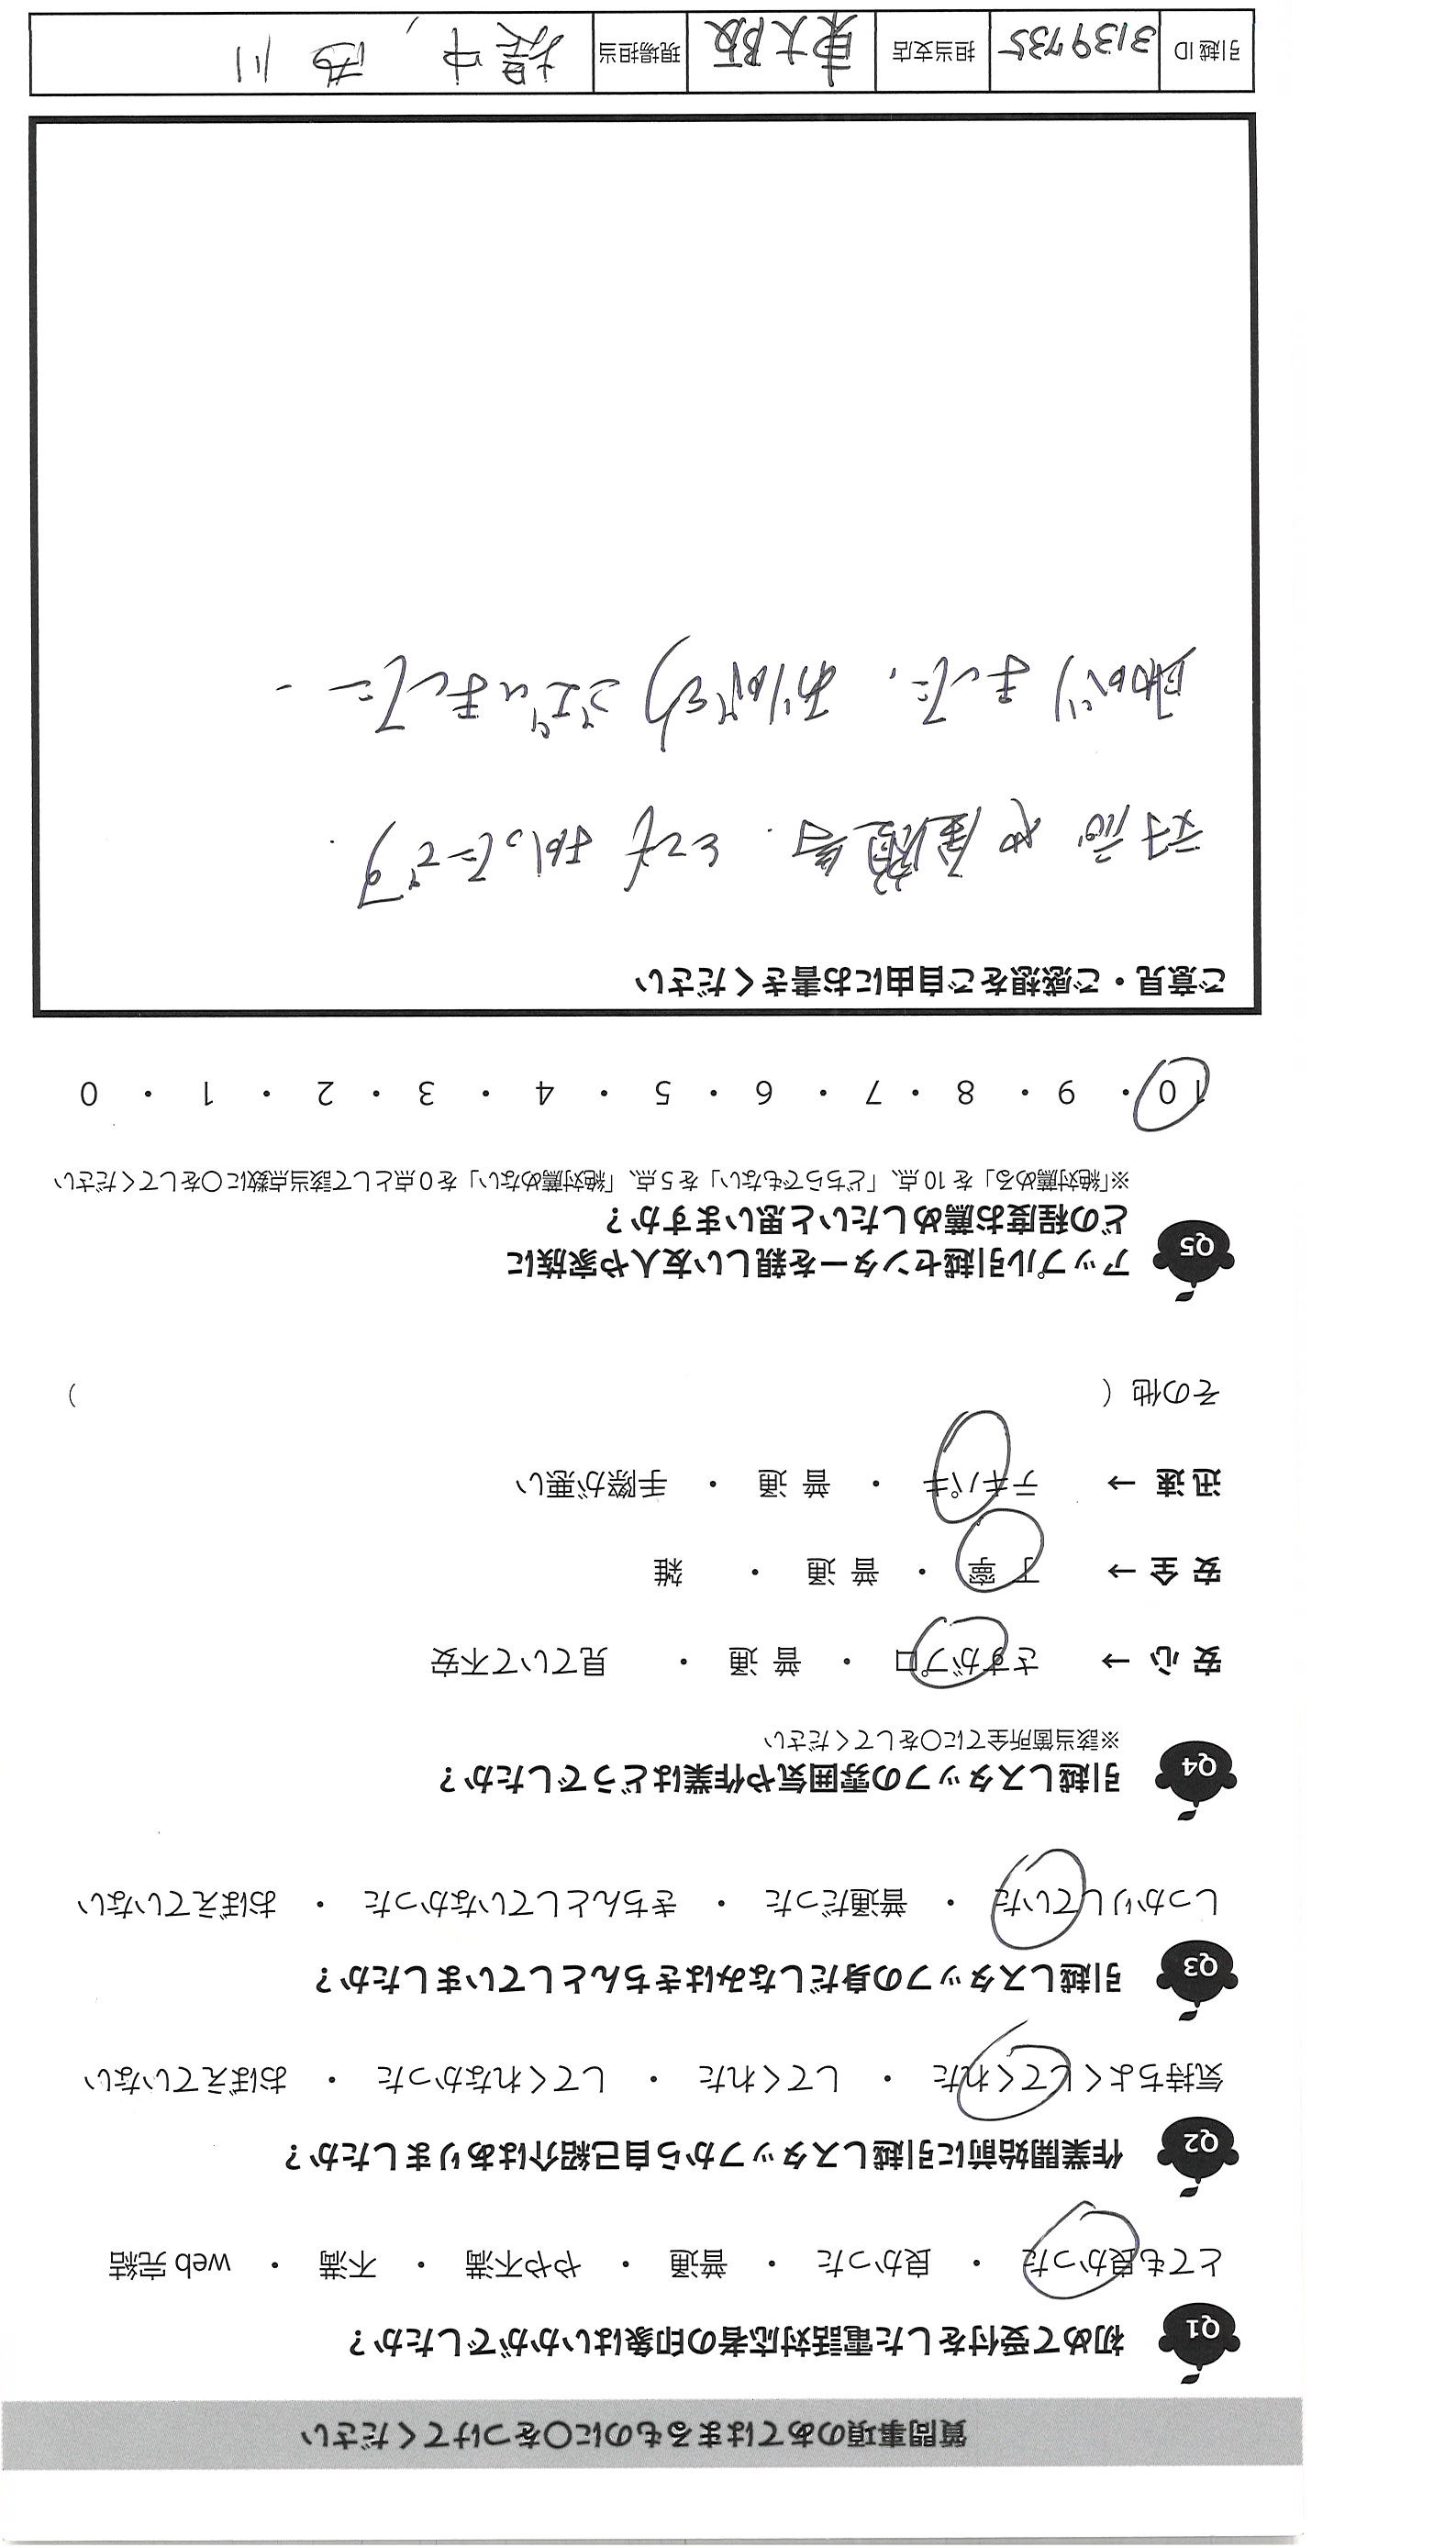 質問事項のあてはまるものに〇をつけてください
Q1 初めて受付をした電話対応者の印象はいかがでしたか？
とても良かった ・ 良かった ・ 普通 ・ やや不満 ・ 不満 ・ web 完結
Q2 作業開始前に引越しスタッフから自己紹介はありましたか？
気持ちよくしてくれた ・ してくれた ・ してくれなかった ・ おぼえていない
Q3 引越しスタッフの身だしなみはきちんとしていましたか？
しっかりしていた ・ 普通だった ・ きちんとしていなかった ・ おぼえていない
Q4 引越しスタッフの雰囲気や作業はどうでしたか？
※該当箇所全てに〇をしてください
安心 → さすがプロ ・ 普通 ・ 見ていて不安
安全 → 丁寧 ・ 普通 ・ 雑
迅速 → テキパキ ・ 普通 ・ 手際が悪い
その他（ ）
Q5 アップル引越センターを親しい友人や家族に
どの程度お薦めしたいと思いますか？
※「絶対薦める」を 10 点、「どちらでもない」を 5 点、「絶対薦めない」を 0 点として該当点数に〇をしてください
10 ・ 9 ・ 8 ・ 7 ・ 6 ・ 5 ・ 4 ・ 3 ・ 2 ・ 1 ・ 0
ご意見・ご感想をご自由にお書きください
対応や 等、とても
助かりました。ありがとうございました。
引越 ID 3139735 担当支店 東大阪 現場担当 堤中, 西川